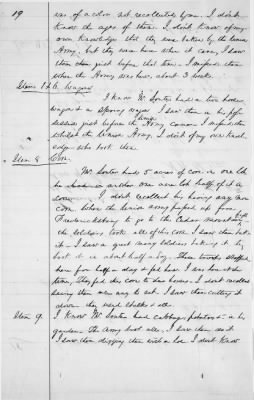 19
was of a color not recollected brown. I don't
know the ages of them. I don't know of my
own knowledge that they were taken by the Union
Army, but they were here when it came, I saw
them then just before that time. I missed them
when the Army was here, about 3 weeks.
Items 7 & 8. Wagons
I know Mr Souter had a two horse
wagon & a spring wagon I saw them in his pos-
session just before the Army came. I missed them
whilst the Union Army, I don't of my own knowl-
edge who took them
Item 8 Corn.
Mr. Souter had 5 acres of corn in one lot
he had in another one lot half of it a
corn. I don't recollect his having any more
corn. When the Union Army passed up from
Fredericksburg to go to the Cedar Mountain fight
the soldiers took all of this corn. I saw them take
it. I saw a great many soldiers taking it, they
took it in about half a day. These troops stopped
here for half a day & fed here. I was here at the
time. They fed this corn to their horses. I don't recollect
having seen men any to eat. I saw them cutting it
down they used stalks & all.
Item 9. I know Mr Souter had cabbage, potatoes & a big
garden. The Army took all, I saw them do it
I saw them digging them with a hoe. I don't know